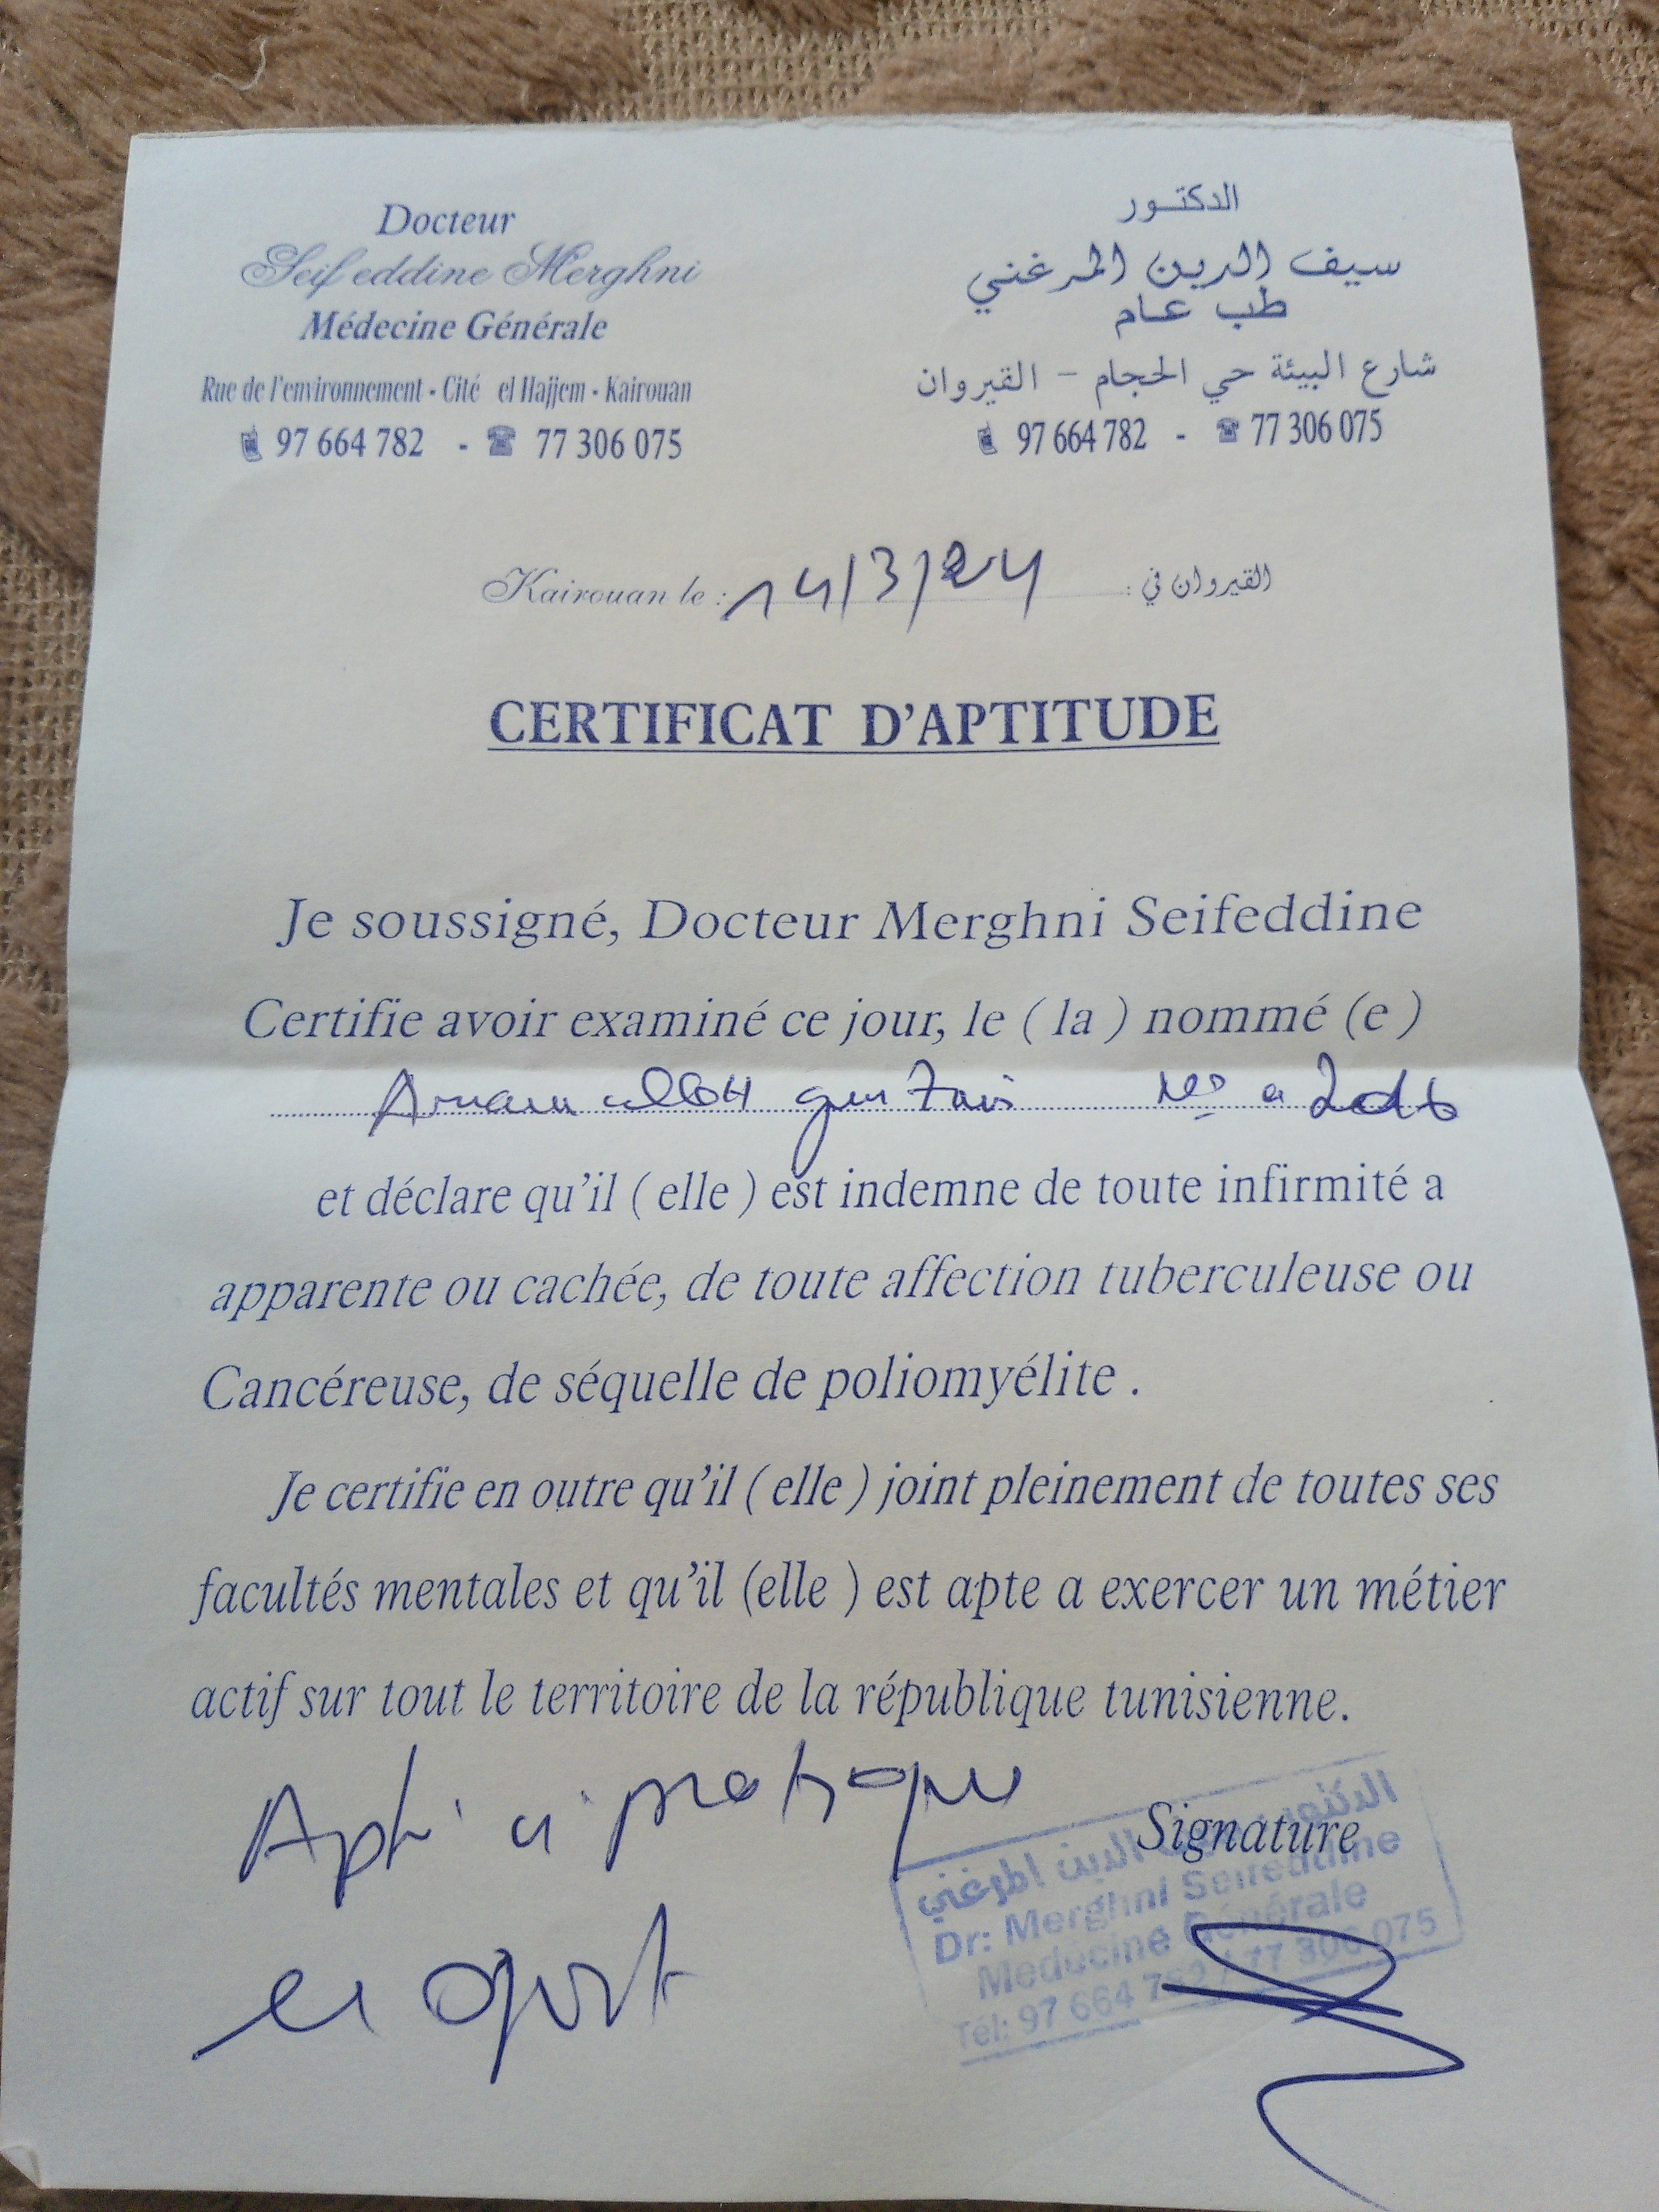 Docteur
Seif eddine Merghni
Médecine Générale
Rue de l'environnement - Cité el Hajjem - Kairouan
97 664 782 - 77 306 075
الدكتور
سيف الدين المرغني
طب عام
شارع البيئة حي الحجام - القيروان
97 664 782 - 77 306 075
Kairouan le : 14/3/24 القيروان في :
CERTIFICAT D'APTITUDE
Je soussigné, Docteur Merghni Seifeddine
Certifie avoir examiné ce jour, le ( la ) nommé (e )
a 2016
et déclare qu'il ( elle ) est indemne de toute infirmité a
apparente ou cachée, de toute affection tuberculeuse ou
Cancéreuse, de séquelle de poliomyélite .
Je certifie en outre qu'il ( elle ) joint pleinement de toutes ses
facultés mentales et qu'il (elle ) est apte a exercer un métier
actif sur tout le territoire de la république tunisienne.
Signature
الدكتور سيف الدين المرغني
Dr: Merghni Seifeddine
Médecine Générale
Tél: 97 664 782 / 77 306 075